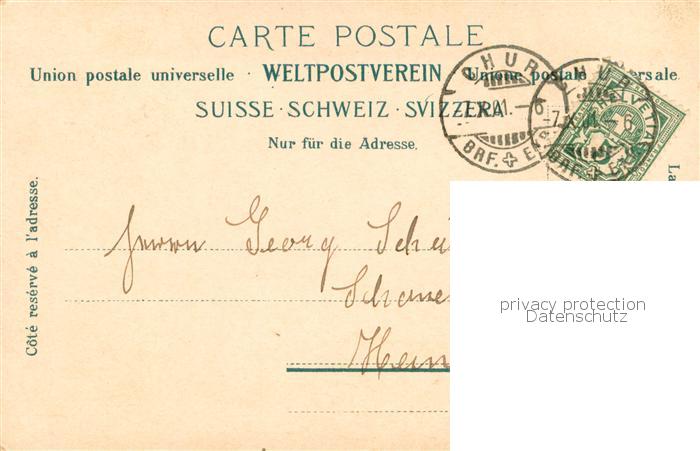 CARTE POSTALE
Union postale universelle · WELTPOSTVEREIN · Unione postale universale
SUISSE · SCHWEIZ · SVIZZERA
Nur für die Adresse.
Côté resérvé à l'adresse.
La
CHUR
-6
BRF. EXP
CHUR
-6
BRF. EXP
HELVETIA
5
Herrn Georg
privacy protection
Datenschutz